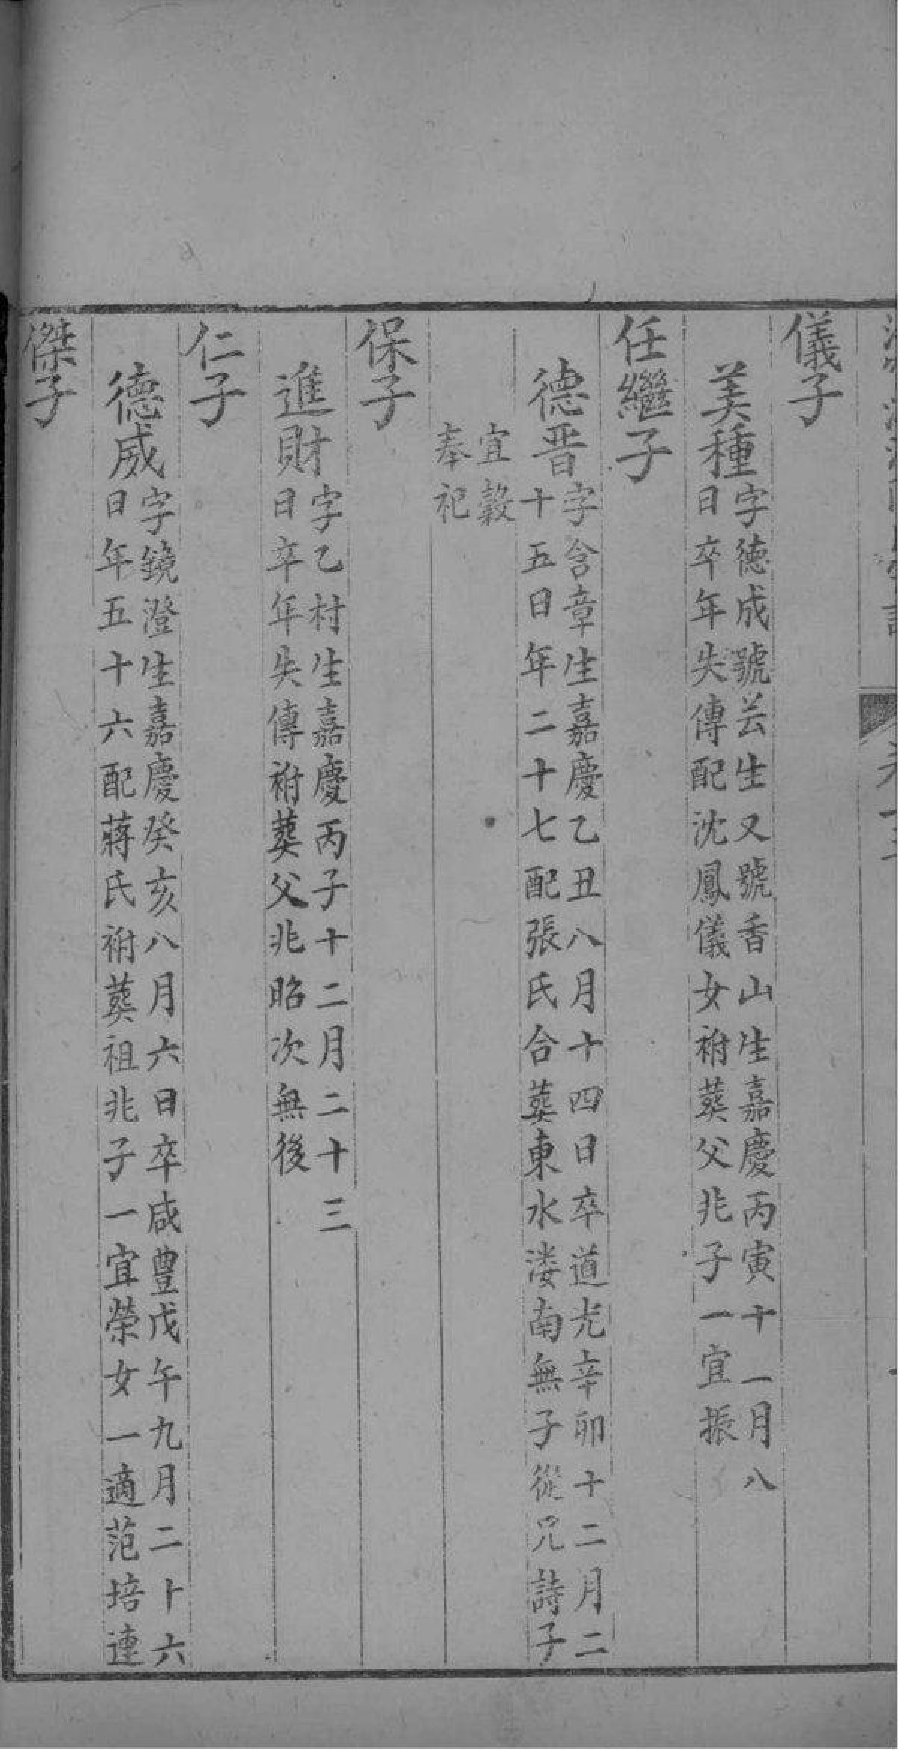 儀子
美種
字德成號芸生又號香山生嘉慶丙寅十一月八
日卒年失傳配沈鳳儀女祔葬父兆子一宜振
任繼子
德晋
字含章生嘉慶乙丑八月十四日卒道光辛卯十二月二
十五日年二十七配張氏合葬東水溇南無子從兄詩子
宜穀
奉祀
保子
進財
字乙村生嘉慶丙子十二月二十三
日卒年失傳祔葬父兆昭次無後
仁子
德威
字鏡澄生嘉慶癸亥八月六日卒咸豊戊午九月二十六
日年五十六配蔣氏祔葬祖兆子一宜榮女一適范培連
傑子